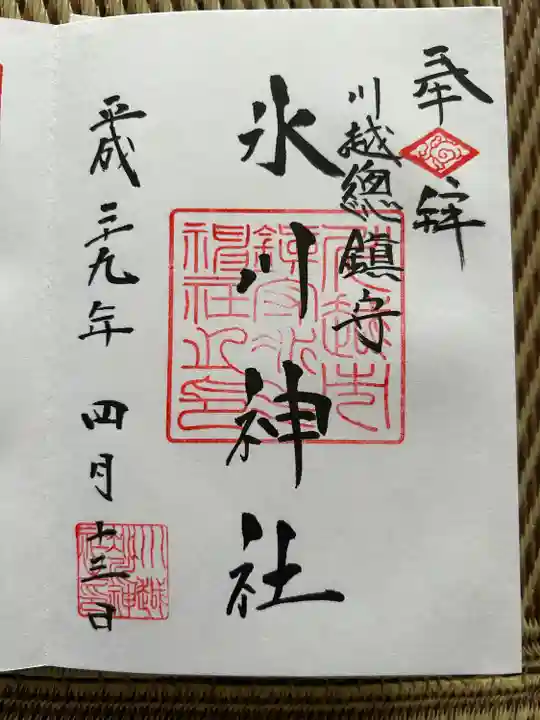 奉拝
川越總鎮守
氷川神社
平成二十九年四月十三日